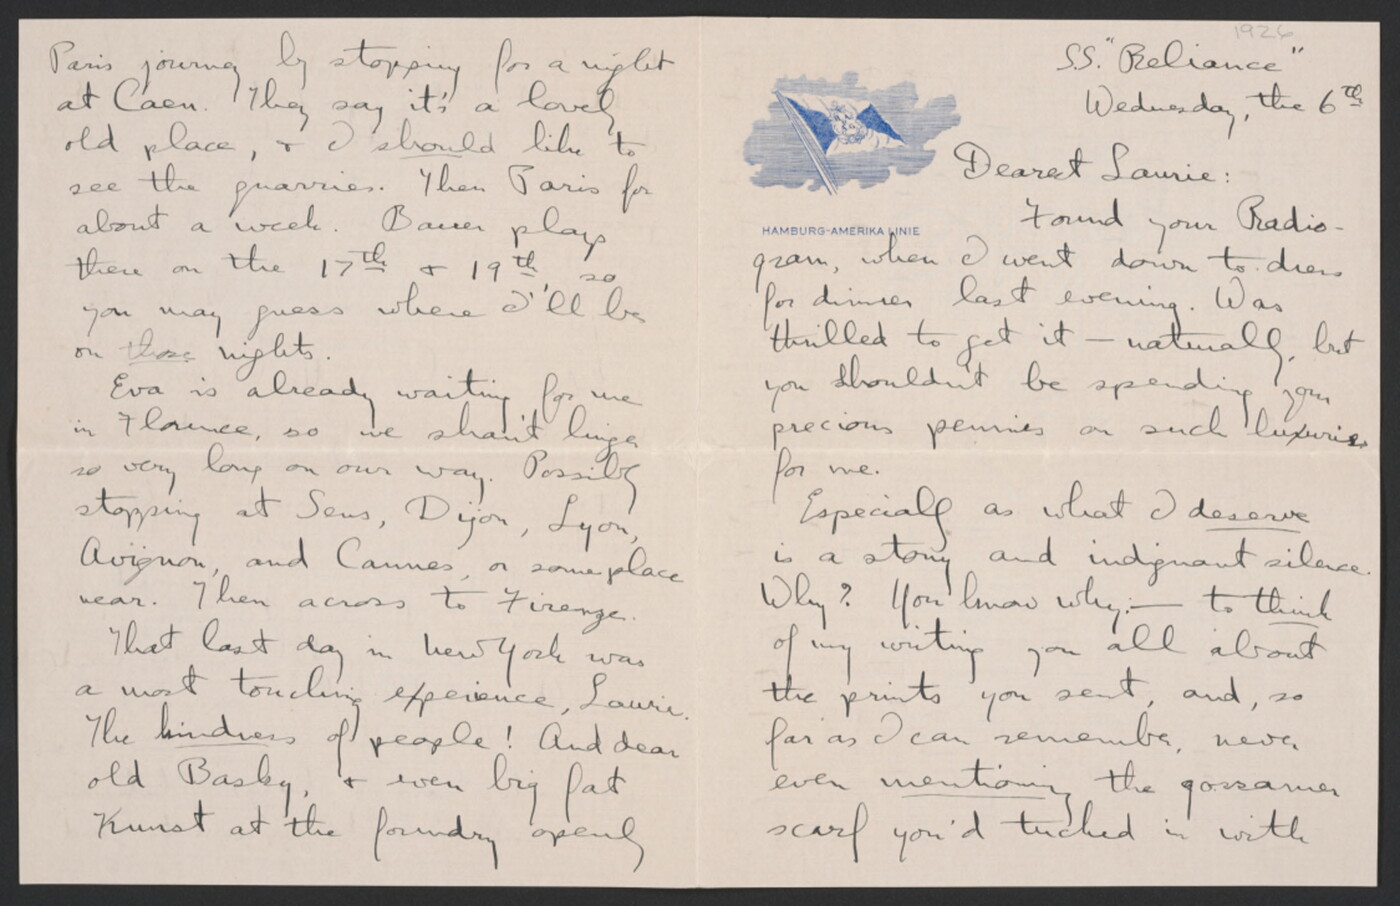 1926
S.S. "Reliance"
Wednesday, the 6th
HAMBURG-AMERIKA LINIE
Dearest Laurie:
Found your Radio-
gram, when I went down to dress
for dinner last evening. Was
thrilled to get it — naturally, but
you shouldn't be spending your
precious pennies on such luxuries
for me.
Especially as what I deserve
is a stony and indignant silence.
Why? You know why:— to think
of my writing you all about
the prints you sent, and, so
far as I can remember, never
even mentioning the gossamer
scarf you'd tucked in with
Paris journey by stopping for a night
at Caen. They say it's a lovely
old place, & I should like to
see the quarries. Then Paris for
about a week. Bauer plays
there on the 17th & 19th, so
you may guess where I'll be
on those nights.
Eva is already waiting for me
in Florence, so we shan't linger
so very long on our way. Possibly
stopping at Sens, Dijon, Lyon,
Avignon, and Cannes, or someplace
near. Then across to Firenze.
That last day in New York was
a most touching experience, Laurie.
The kindness of people! And dear
old Basky, & even big fat
Kunst at the foundry openly